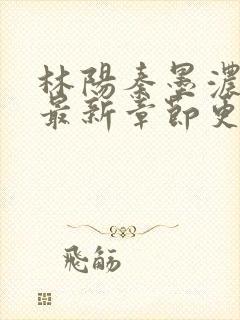 林陽秦墨濃
最新章節更
飛觞